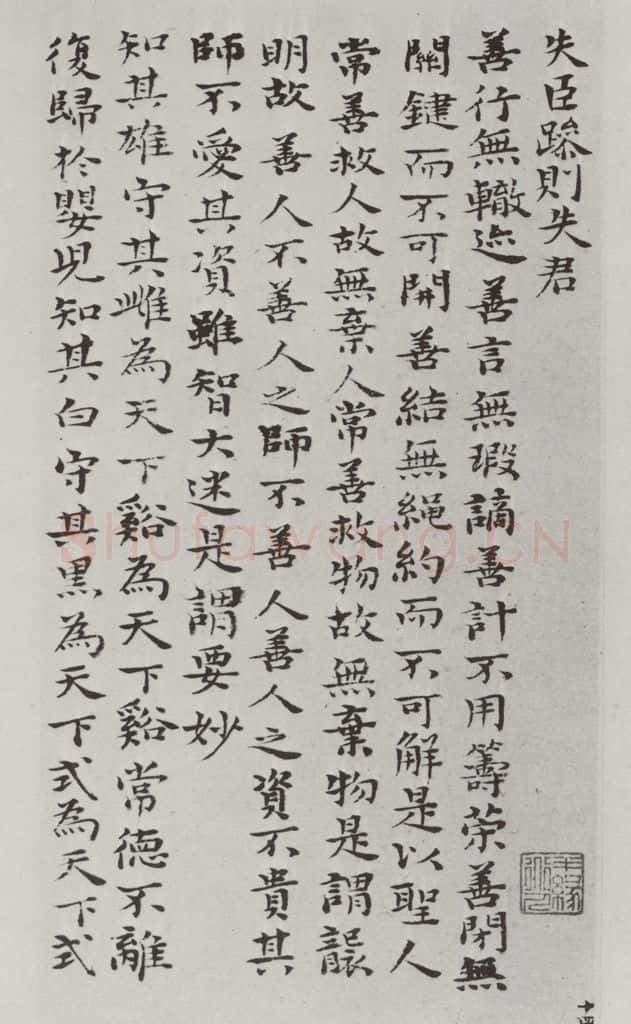 失臣躁則失君
善行無轍迹善言無瑕謫善計不用籌策善閉無
關鍵而不可開善結無繩約而不可解是以聖人
常善救人故無棄人常善救物故無棄物是謂襲
明故善人不善人之師不善人善人之資不貴其
師不愛其資雖智大迷是謂要妙
知其雄守其雌為天下谿為天下谿常德不離
復歸於嬰兒知其白守其黑為天下式為天下式
Shufawang.CN
十四